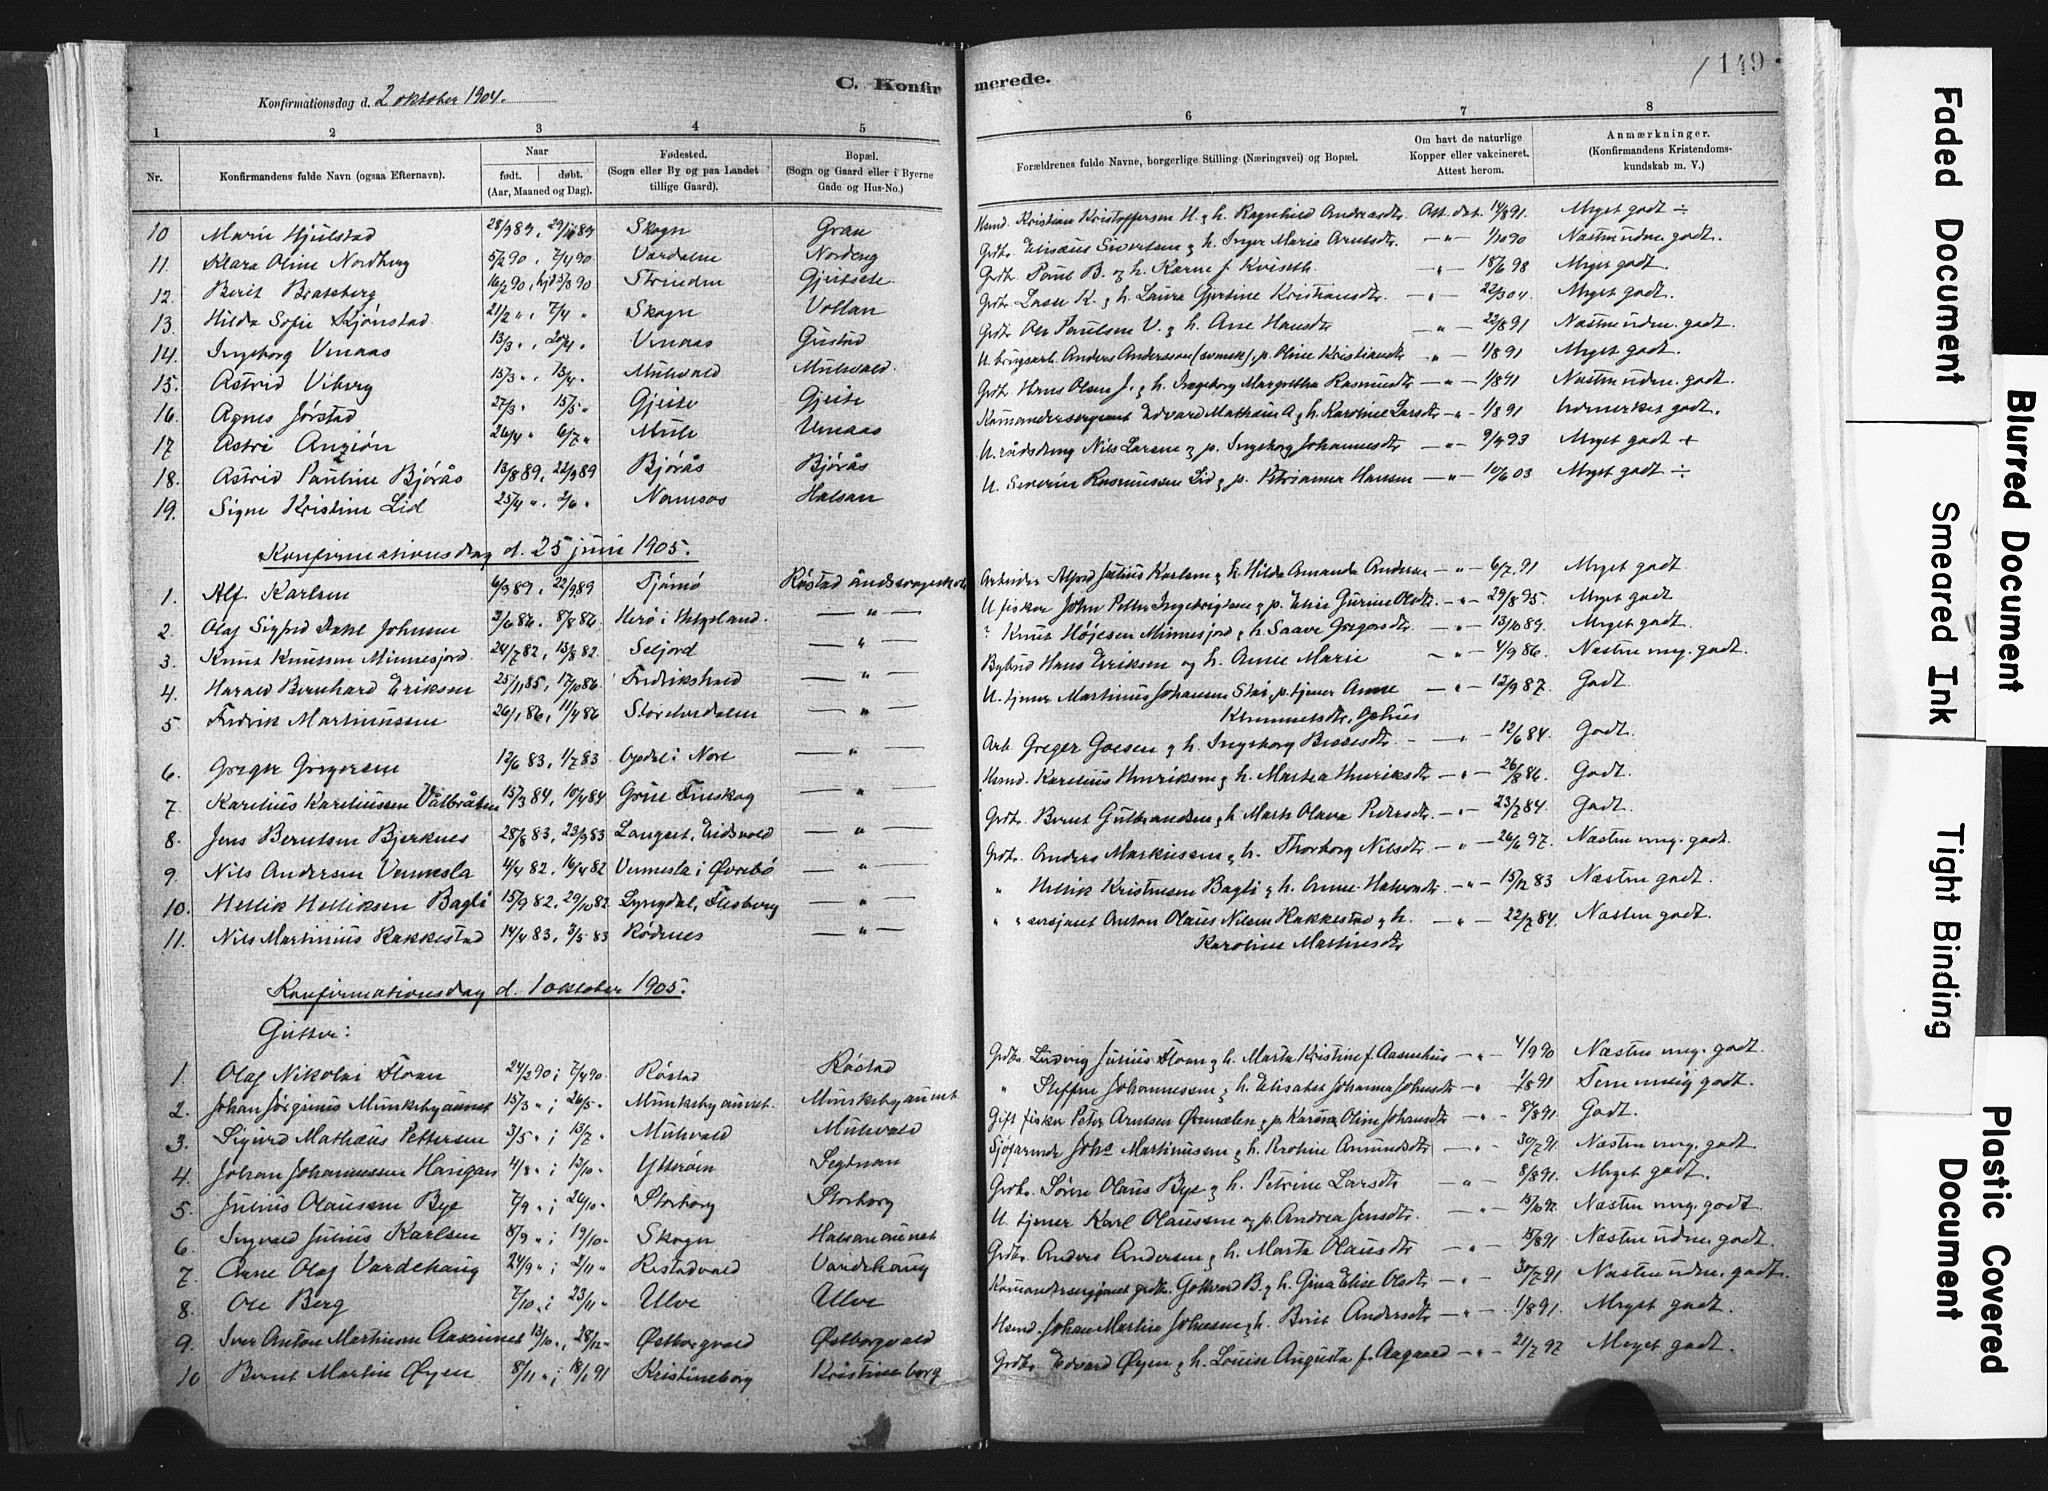 C. Konfirmerede.
149
Konfirmationsdag d. 2 oktober 1904.
1 2 3 4 5 6 7 8
Nr. Konfirmandens fulde Navn (ogsaa Efternavn). Naar født. døbt. (Aar, Maaned og Dag). Fødested. (Sogn eller By og paa Landet tillige Gaard). Bopæl. (Sogn og Gaard eller i Byerne Gade og Hus-No.) Forældrenes fulde Navne, borgerlige Stilling (Næringsvei) og Bopæl. Om havt de naturlige Kopper eller vakcineret. Attest herom. Anmærkninger. (Konfirmandens Kristendomskundskab m. V.)
10 Marie Hjulstad 28/9 89, Skogn Gran Husmd. Kristian Kristoffersen H. & h. Ragnhild Andreasdtr. Att. dat. 14/8 91. Meget godt ÷
11. Klara Oline Nordberg 5/2 90, 7/4 90 Værdalen Nordeng Grdbr. Elisæus Sivertsen & h. Inger Maria Arntsdtr. — " — 1/10 90 Næsten udm. godt.
12. Berit Bratsberg 16/2 90, hjd 25/3 90 Strinden Gjeitsete Grdbr. Paul B. og h. Karen f. Kviseth. " 18/6 98 Meget godt.
13. Hilda Sofie Skjønstad 21/2 ", 7/4 " Skogn Vollan Grdbr. Lasse K. & h. Laura Gjertine Kristiansdtr. — " — 22/3 04. Meget godt.
14. Ingeborg Vinaas 13/3 ", 20/4 " Vinaas Gustad Grdbr. Ole Paulsen V. & h. Ane Hansdtr — " — 22/8 91 Næsten udm. godt.
15. Astrid Viberg 15/3 ", 13/4 " Mulevald Mulevald. U. brugsarb. Anders Andersson (svensk), p. Oline Kristiansdtr " — 1/8 91 Meget godt.
16. Agnes Jørstad 27/3 " 15/5 " Gjeite Gjeite Grdbr. Hans Olsen J. & h. Ingeborg Margretha Rasmusdtr — " — 1/8 91 Næsten udm. godt.
17 Astri Anziøn 26/4 " 6/7 " Mule Vinaas Komandersergeant Edvard Mathæus A. & h. Karoline Larsdtr — " — 1/8 91 Udmerket godt.
18. Astrid Pauline Bjørås 13/8 89, 22/9 89 Bjørås Bjørås U. rådsdreng Nils Larsen & p. Ingeborg Johannesdtr — " — 9/4 93 Meget godt +
19. Signe Kristine Lid 25/4 ", 2/6 " Namsos Halsan U. Severin Rasmussen Lid & p. Petrianna Hansen — " — 10/6 03 Meget godt ÷
Konfirmationsdag d. 25 juni 1905.
1. Alf Karlsen 6/9 89, 22/9 89 Tjømø Røstad Arbeider Alfred Julius Karlsen & h. Hilda Amanda Andersen — " — 6/7 91 Meget godt
2. Olaf Sigfred Dahl Johnsen 3/6 86, 8/8 86 Herø i Helgeland. — " — U. fisker John Petter Ingebrigtsen & p. Elise Gurine Olsdtr. — " — 29/8 95. Meget godt
3. Knut Knutsen Minnesjord. 24/7 82, 13/8 82. Seljord — " — ? Knut Højesen Minnesjord & h. Saave Gregersdtr. — " — 13/10 89. Meget godt.
4. Harald Bernhard Eriksen 25/11 85, 17/10 86. Fredrikshald — " — Bybud Hans Eriksen og h. Anne Marie — " — 4/9 86. Næsten mg. godt.
5. Fredrik Martinussen 26/1 86, 11/4 86 Storelvedalen — " — U. tjener Martinus Johansen Stai, p. tjener Anne — " — 12/9 87. Godt.
Klemmetsdtr. Ophus
6. Greger Gregersen 12/6 83, 1/7 83 Opdal i Nore — " — Arb. Greger Goesen & h. Ingeborg — " — 12/6 84. Godt.
7. Karelius Kareliussen Vålbråten 15/3 84, 10/4 84 Grue Finskog — " — Husmd. Karelius Henriksen & h. Martea Henriksdtr — " — 26/8 86. Godt.
8. Jens Berntsen Bjerknes 28/8 83, 23/9 83 Langset, Eidsvold — " — Grdbr. Bernt Gulbrandsen & h. Marte Olava Pedersdtr. — " — 23/7 84. Godt
9. Nils Andersen Vennesla 4/4 82, 16/4 82 Vennesla i Øvrebø — " — Grdbr. Anders Markussen & h. Thorborg Nilsdtr — " — 26/6 97. Næsten mg. godt.
10. Hellik Helliksen Bagli 15/9 82, 29/10 82. Lyngdal, Flesberg — " — " Hellik Kristensen Bagli & h. Anne Halvorsdtr. — " — 15/12 83 Næsten godt.
11. Nils Martinius Rakkestad 14/4 83, 3/5 83 Rødenes — " — " " sersjant Anton Olaus Nilsen Rakkestad & h. — " — 22/7 84. Næsten godt.
Karoline Martinsdtr
Konfirmationsdag d. 1 oktober 1905.
Gutter:
1. Olaf Nikolai Floan 24/2 90; 7/4 90. Røstad Røstad Grdbr. Ludvig Julius Floan & h. Marta Kristine f. Aasenhus — " — 4/9 90 Næsten mg. godt.
2. Johan Jørginus Munkebyaunet 15/3 "; 26/5 " Munkebyaunet. Munkebyaunet " Steffen Johannessen & h. Elisabet Johanna Johnsdtr " 1/8 91 Temmelig godt.
3. Sigurd Mathæus Pettersen 3/5 "; 13/7 " Mulevald Mulevald Gift fisker Peter Arntsen Ørmælen & p. Karen Oline Johansdtr " — 8/8 91. Godt.
4. Johan Johannessen Haugan 4/8 "; 12/10 " Ytterøen Segtnan Sjøfarende Johs Martinussen & h. Peroline Amundsdtr — " — 30/7 91 Næsten mg. godt
5. Julius Olaussen Bye 7/9 "; 26/10 " Storborg Storborg Grdbr. Søren Olaus Bye & h. Petrine Larsdtr — " — 8/8 91. Meget godt.
6. Ingvald Julius Karlsen 8/9 "; 19/10 " Skogn Halsanaunet U. tjener Karl Olaussen og p. Andrea Jensdtr. — " — 15/10 92. Næsten mg. godt
7. Arne Olaf Vardehaug 24/9 "; 2/11 " Ristadvald Vardehaug Grdbr. Anders Andersen & h. Marta Olausdtr — " — 15/8 91 Næsten udm. godt.
8. Ole Berg 7/10 "; 23/11 " Ulve Ulve Komandersersjant grdbr. Gotvard B. & h. Gina Elise Olsdtr — " — 30/7 91 Næsten udm. godt.
9. Iver Anton Martinsen Aasaunet 13/10 "; 28/12 " Østborgvald Østborgvald Husmd. Johan Martin Johnsen & h. Berit Andersdtr — " — 1/8 91. Meget godt.
10 Bernt Martin Øyen 8/11 "; 18/1 91 Kristineborg Kristineborg Grdbr. Edvard Øyen & h. Louise Augusta f. Aagaard — " — 21/7 92 Meget godt.
Faded Document
Blurred Document
Smeared Ink
Tight Binding
Plastic Covered Document